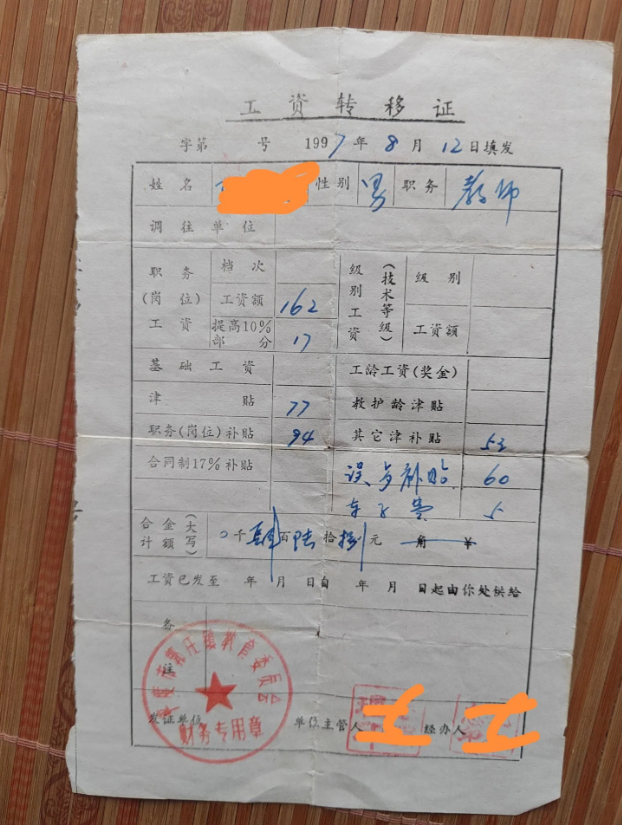 工资转移证
字第 号 1997年8月12日填发
姓名 性别 男 职务 教师
调往单位
职务(岗位)工资 档次 级别工资(技术等级) 级别
工资额 162 工资额
提高10%部分 17
基础工资 工龄工资(奖金)
津贴 77 教护龄津贴
职务(岗位)补贴 94 其它津补贴 53
合同制17%补贴 误歺补贴 60
车 费 5
合计金额(大写) 0千肆百陆拾捌元 角 ¥
工资已发至 年 月 日自 年 月 日起由你处供给
备注
镇教育委员会
财务专用章
发证单位 单位主管人 经办人